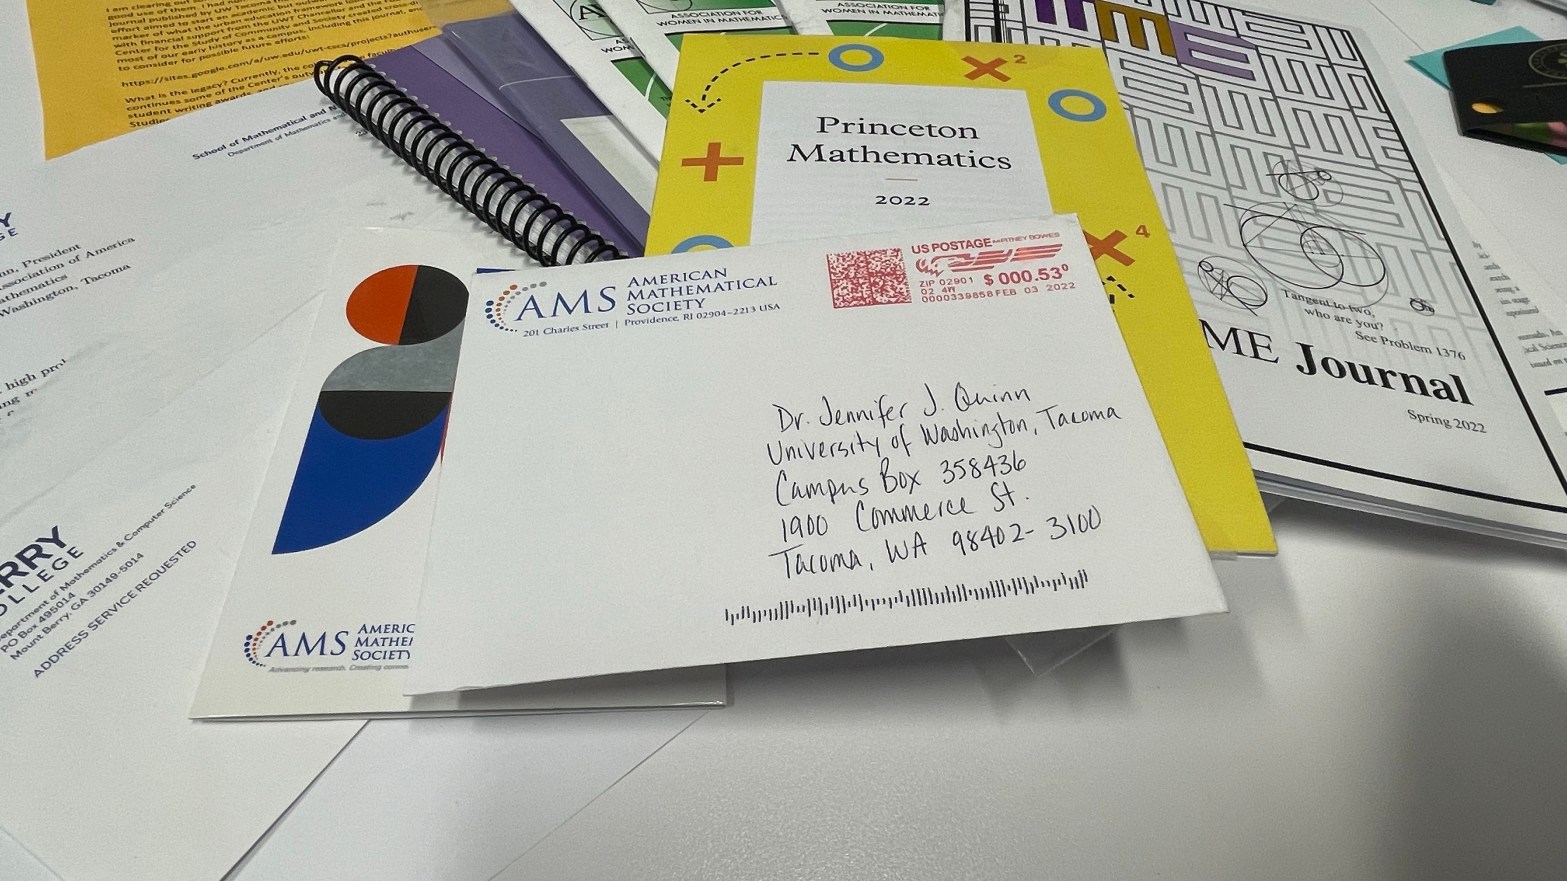 I am clearing out
good use of them. I had
journal published by
effort aimed to start an
marker of what the urban education
with financial support from the UWT Chancellor enabled cross-
Center for the Study of Community and Society
most of our early history as a campus, including this journal,
to consider for possible future efforts:
https://sites.google.com/a/uw.edu/uwt-cscs/projects?authuser
What is the legacy? Currently, the
continues some of the Center's
student writing awards
School of Mathematical and
Department of Mathematics
President
Association of America
Mathematics
Washington, Tacoma
high
COLLEGE
Department of Mathematics & Computer Science
PO Box 495014
Mount Berry, GA 30149-5014
ADDRESS SERVICE REQUESTED
ASSOCIATION FOR
WOMEN IN MATHEMATICS
ASSOCIATION FOR
WOMEN IN MATHEMAT
Princeton
Mathematics
2022
2
4
AMS AMERICAN
MATHEMATICAL
SOCIETY
201 Charles Street | Providence, RI 02904-2213 USA
US POSTAGE PITNEY BOWES
ZIP 02901 $ 000.53⁰
02 4W
0000339858 FEB 03 2022
Dr. Jennifer J. Quinn
University of Washington, Tacoma
Campus Box 358436
1900 Commerce St.
Tacoma, WA 98402-3100
AMS AMERIC
MATHE
SOCIETY
Advancing research. Creating
Tangent to two,
who are you?
See Problem 1376
ME Journal
Spring 2022